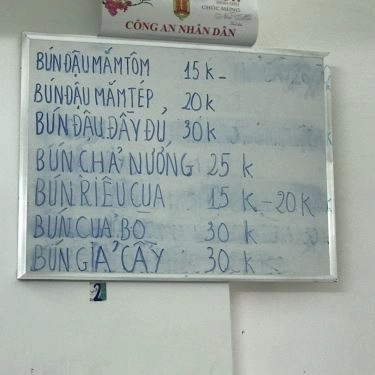 CHÚC MỪNG
CÔNG AN NHÂN DÂN
BÚN ĐẬU MẮM TÔM 15 K -
BÚN ĐẬU MẮM TÉP 20 K
BÚN ĐẬU ĐẦY ĐỦ 30 K
BÚN CHẢ NƯỚNG 25 K
BÚN RIÊU CUA 15 K - 20 K
BÚN CUA BÒ 30 K
BÚN GIẢ CẦY 30 K
2